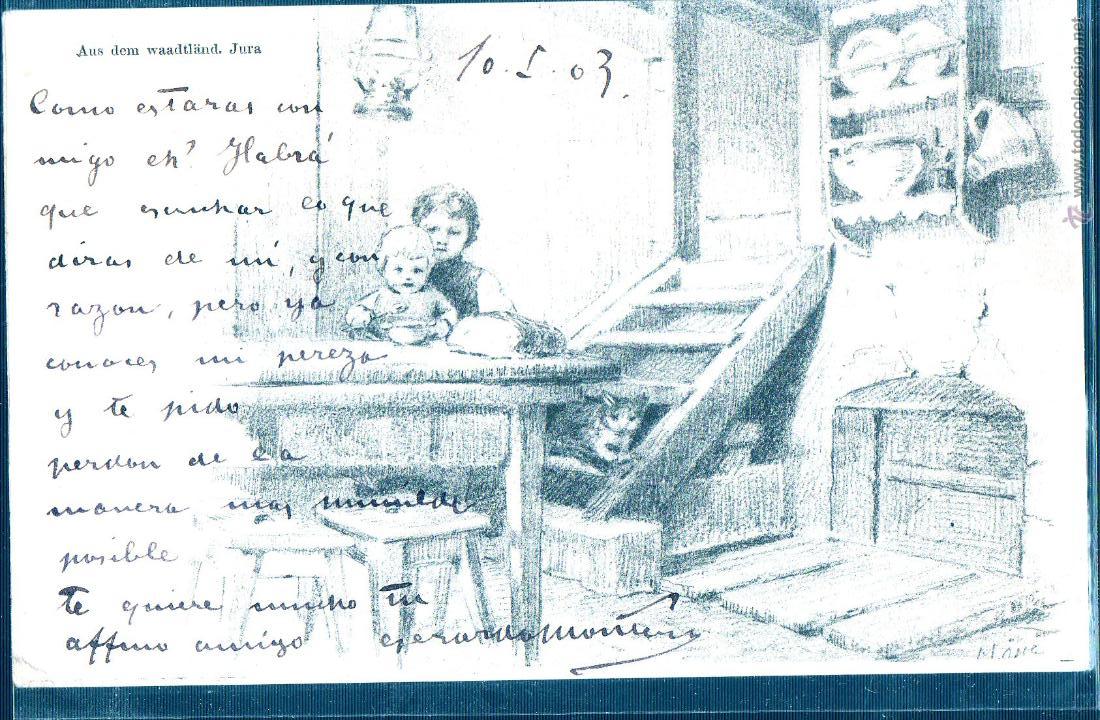 Aus dem waadtländ. Jura
10. I. 03.
Como estaras con
migo eh? Habrá
que escuchar lo que
diras de mi, y con
razon, pero ya
conoces mi pereza
y te pido
perdon de la
manera mas humilde
posible
te quiere mucho tu
affmo amigo Gerardo Montero
www.todocoleccion.net